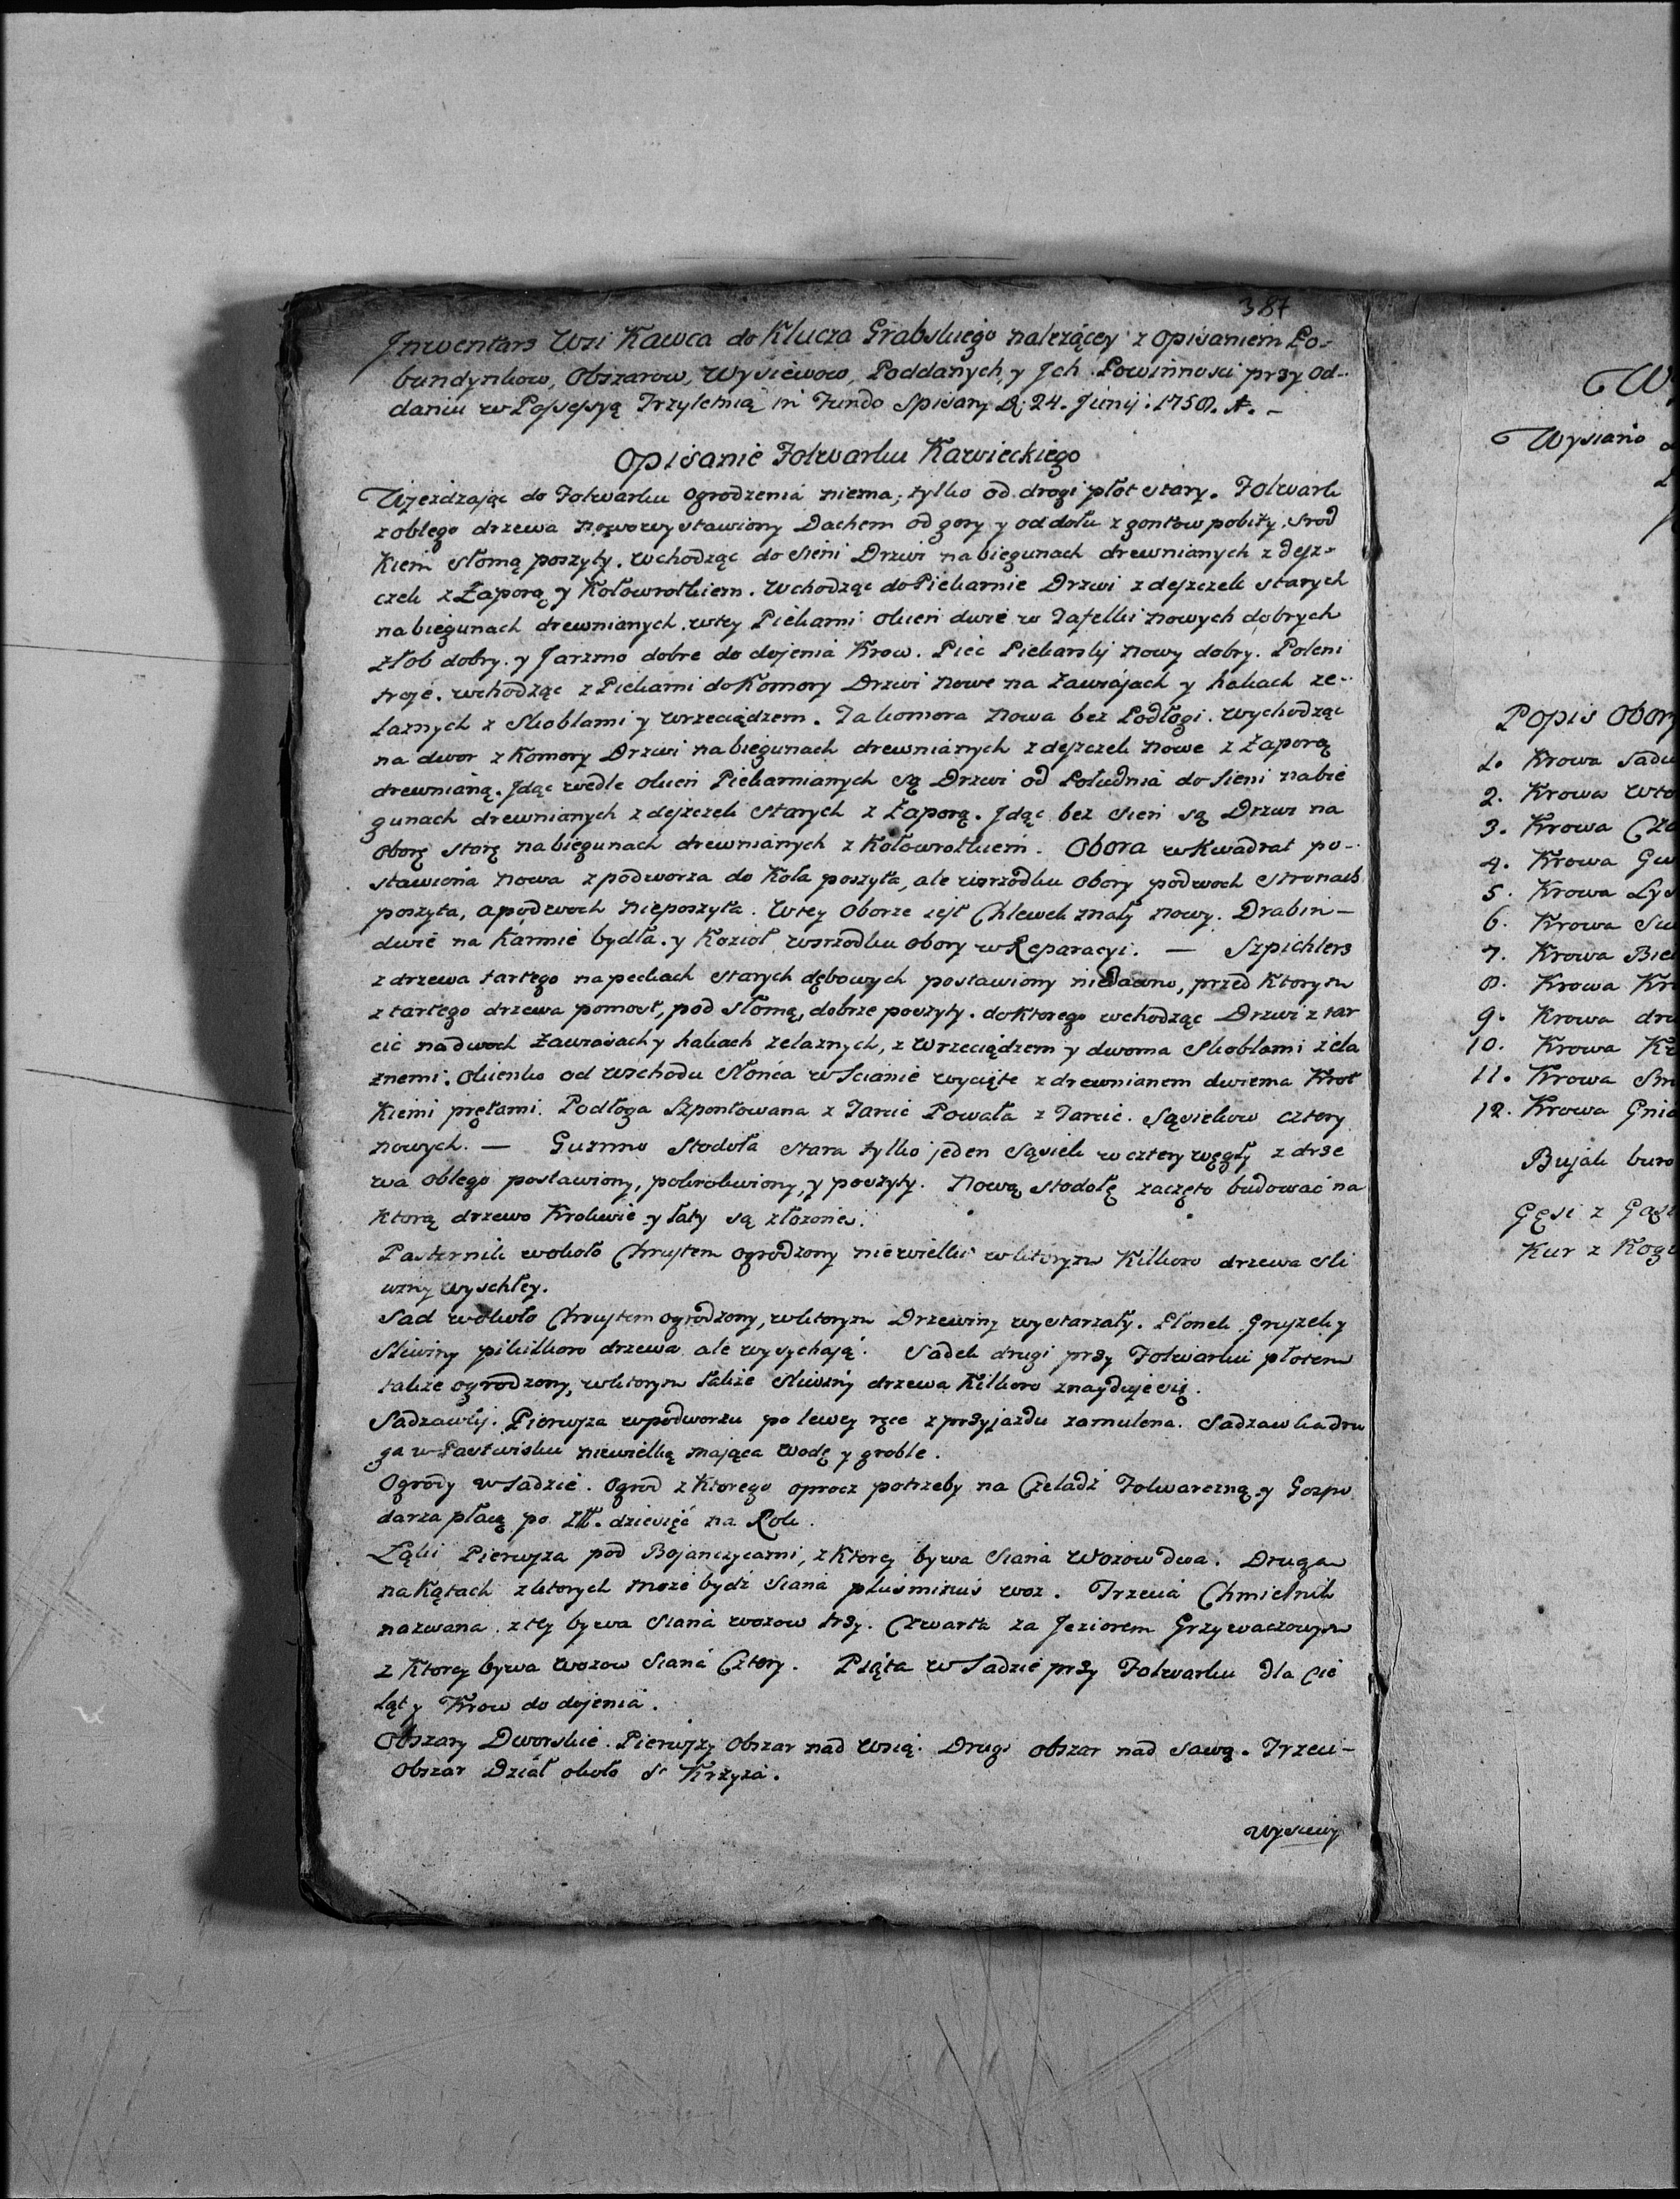 387
Inwentarz Wsi Kawca do Klucza Grabskiego nalezącey z opisaniem Po-
bundynkow, Obszarow, Wysiewow, Poddanych, y Ich Powinnosci przy od-
daniu w Possessyą Trzyletnią in Fundo Spisany D. 24. Junij. 1758. A. -
Opisanie Folwarku Kawieckiego
Wjezdzając do Folwarku ogrodzenia niema, tylko od drogi płot stary. Folwark
z oblego drzewa nowo wystawiony Dachem od gory y od dołu z gontow pobity. srod
kiem słomą poszyty. wchodząc do Sieni Drzwi na biegunach drewnianych z desz-
czek z Zaporą y Kołowrotkiem. Wchodząc do Piekarnie Drzwi z deszczek starych
na biegunach drewnianych. w tey Piekarni okien dwie w Tafelki nowych dobrych
złob dobry. y Jarzmo dobre do dojenia Krow. Piec Piekarsky nowy dobry. Poleni
troje. wchodząc z Piekarni do Komory Drzwi nowe na Zawiasach y hakach ze-
laznych z Skoblami y wrzeciądzem. Ta komora nowa bez Podłogi. wychodząc
na dwor z Komory Drzwi na biegunach drewnianych z deszczek nowe z Zaporą
drewnianą. Idąc wedle okien Piekarnianych są Drzwi od Południa do Sieni na bie
gunach drewnianych z deszczek starych z Zaporą. Idąc bez sien są Drzwi na
Oborę starę na biegunach drewnianych z Kołowrotkiem. Obora w Kwadrat po-
stawiona nowa z podworza do Koła poszyta, ale wsrzodku obory podwoch stronach
poszyta, a podwoch nieposzyta. W tey Oborze iest Chlewek mały nowy. Drabin-
dwie na Karmie bydła. y Kozioł wsrzodku obory w Reparacyi. — Szpichlerz
z drzewa tartego na peckach starych dębowych postawiony niedawno, przed Ktorym
z tartego drzewa pomost, pod słomą, dobrze poszyty. do Ktorego wchodząc Drzwi z tar
cic na dwoch Zawiasach y hakach zelaznych, z Wrzeciądzem y dwoma Skoblami zela
znemi. Okienko od wschodu słońca w Scianie wycięte z drewnianem dwiema Krot
kiemi prętami. Podłoga Szpontowana z Tarcic Powała z Tarcic. Sąsiekow cztery
nowych. — Gumno Stodoła stara tylko jeden Sąsiek w cztery węgły z drze
wa oblego postawiony, pokrokwiony, y poszyty. Nową stodołę zaczęto budować na
Ktorą drzewo Krokwie y łaty są złozone.
Pasternik wokoło Chrustem ogrodzony niewielki w ktorym Kilkoro drzewa sli
winy wyschłey.
Sad wokoło Chrustem ogrodzony, w ktorym Drzewiny wystarzały. Płonek Gruszek y
Sliwiny pikilkoro drzewa ale wysychają. Sadek drugi przy Folwarku płotem
takze ogrodzony, w ktorym takze sliwiny drzewa Kilkoro znayduje się.
Sadzawky. Pierwsza w podworzu po lewey ręce z przyjazdu zamulona. Sadzawka dru
ga w Pastwisku niewielką mająca wodę y groble.
Ogrody w Sadzie. Ogrod z Ktorego oprocz potrzeby na Czeladz Folwarczną y Gospo
darza płacą po Złt. dziewięć na Rok.
Łąki Pierwsza pod Bojanczycami, z Ktorey bywa Siana Wozow dwa. Druga
na Kątach z ktorych moze bydź siana plus minus woz. Trzecia Chmielnik
nazwana z tey bywa Siana wozow trzy. Czwarta za Jeziorem Grzywaczowym
z Ktorey bywa wozow Siana Cztery. Piąta w Sadzie przy Folwarku dla Cie
ląt y Krow do dojenia.
Obszary Dworskie. Pierwszy Obszar nad Wsią. Drugi obszar nad sawą. Trzeci-
Obszar Dział około S. Krzyza.
Wysiewy
Wysiano
Popis Obory
1. Krowa
2. Krowa
3. Krowa
4. Krowa
5. Krowa
6. Krowa
7. Krowa
8. Krowa
9. Krowa
10. Krowa
11. Krowa
12. Krowa
Bujak
Gęsi z
Kur z